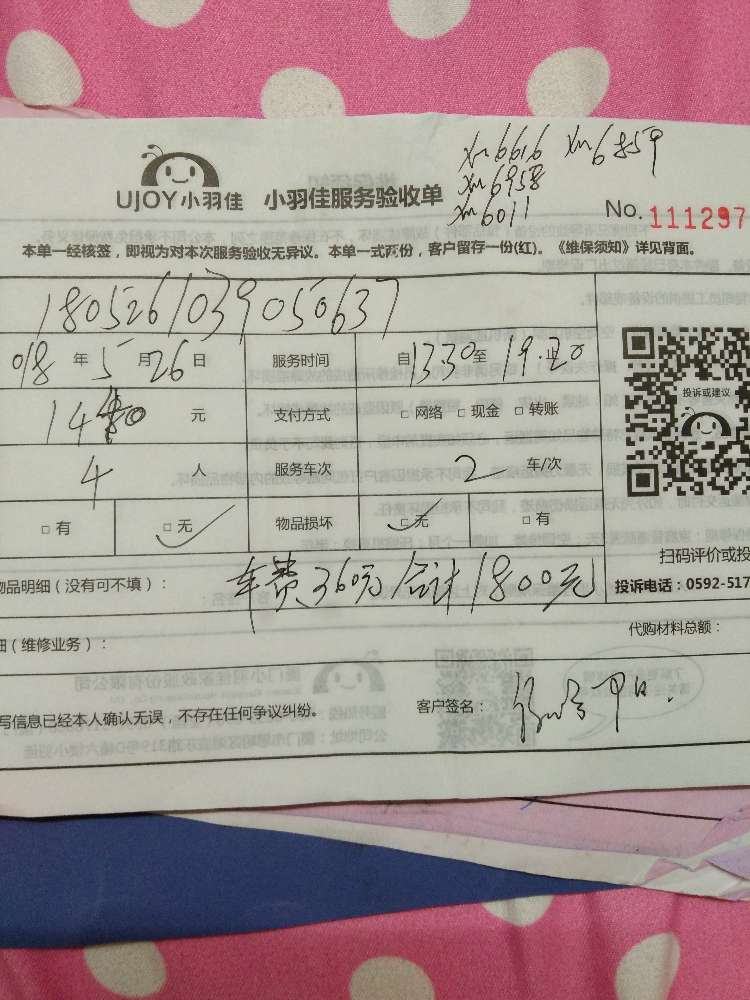 xm6616 xm6859
xm6958
xm6011
UJOY小羽佳 小羽佳服务验收单
No. 111297
本单一经核签，即视为对本次服务验收无异议。本单一式两份，客户留存一份(红)。《维保须知》详见背面。
1805261039050637
018 年 5 月 26 日 服务时间 自 13.30 至 19.20
1440 元 支付方式 □ 网络 □ 现金 □ 转账
投诉或建议
4 人 服务车次 2 车/次
□ 有 □ 无 物品损坏 □ 无 □ 有
扫码评价或投
物品明细（没有可不填）： 车费360元/合计1800元
投诉电话：0592-517
（维修业务）：
代购材料总额：
写信息已经本人确认无误，不存在任何争议纠纷。 客户签名：